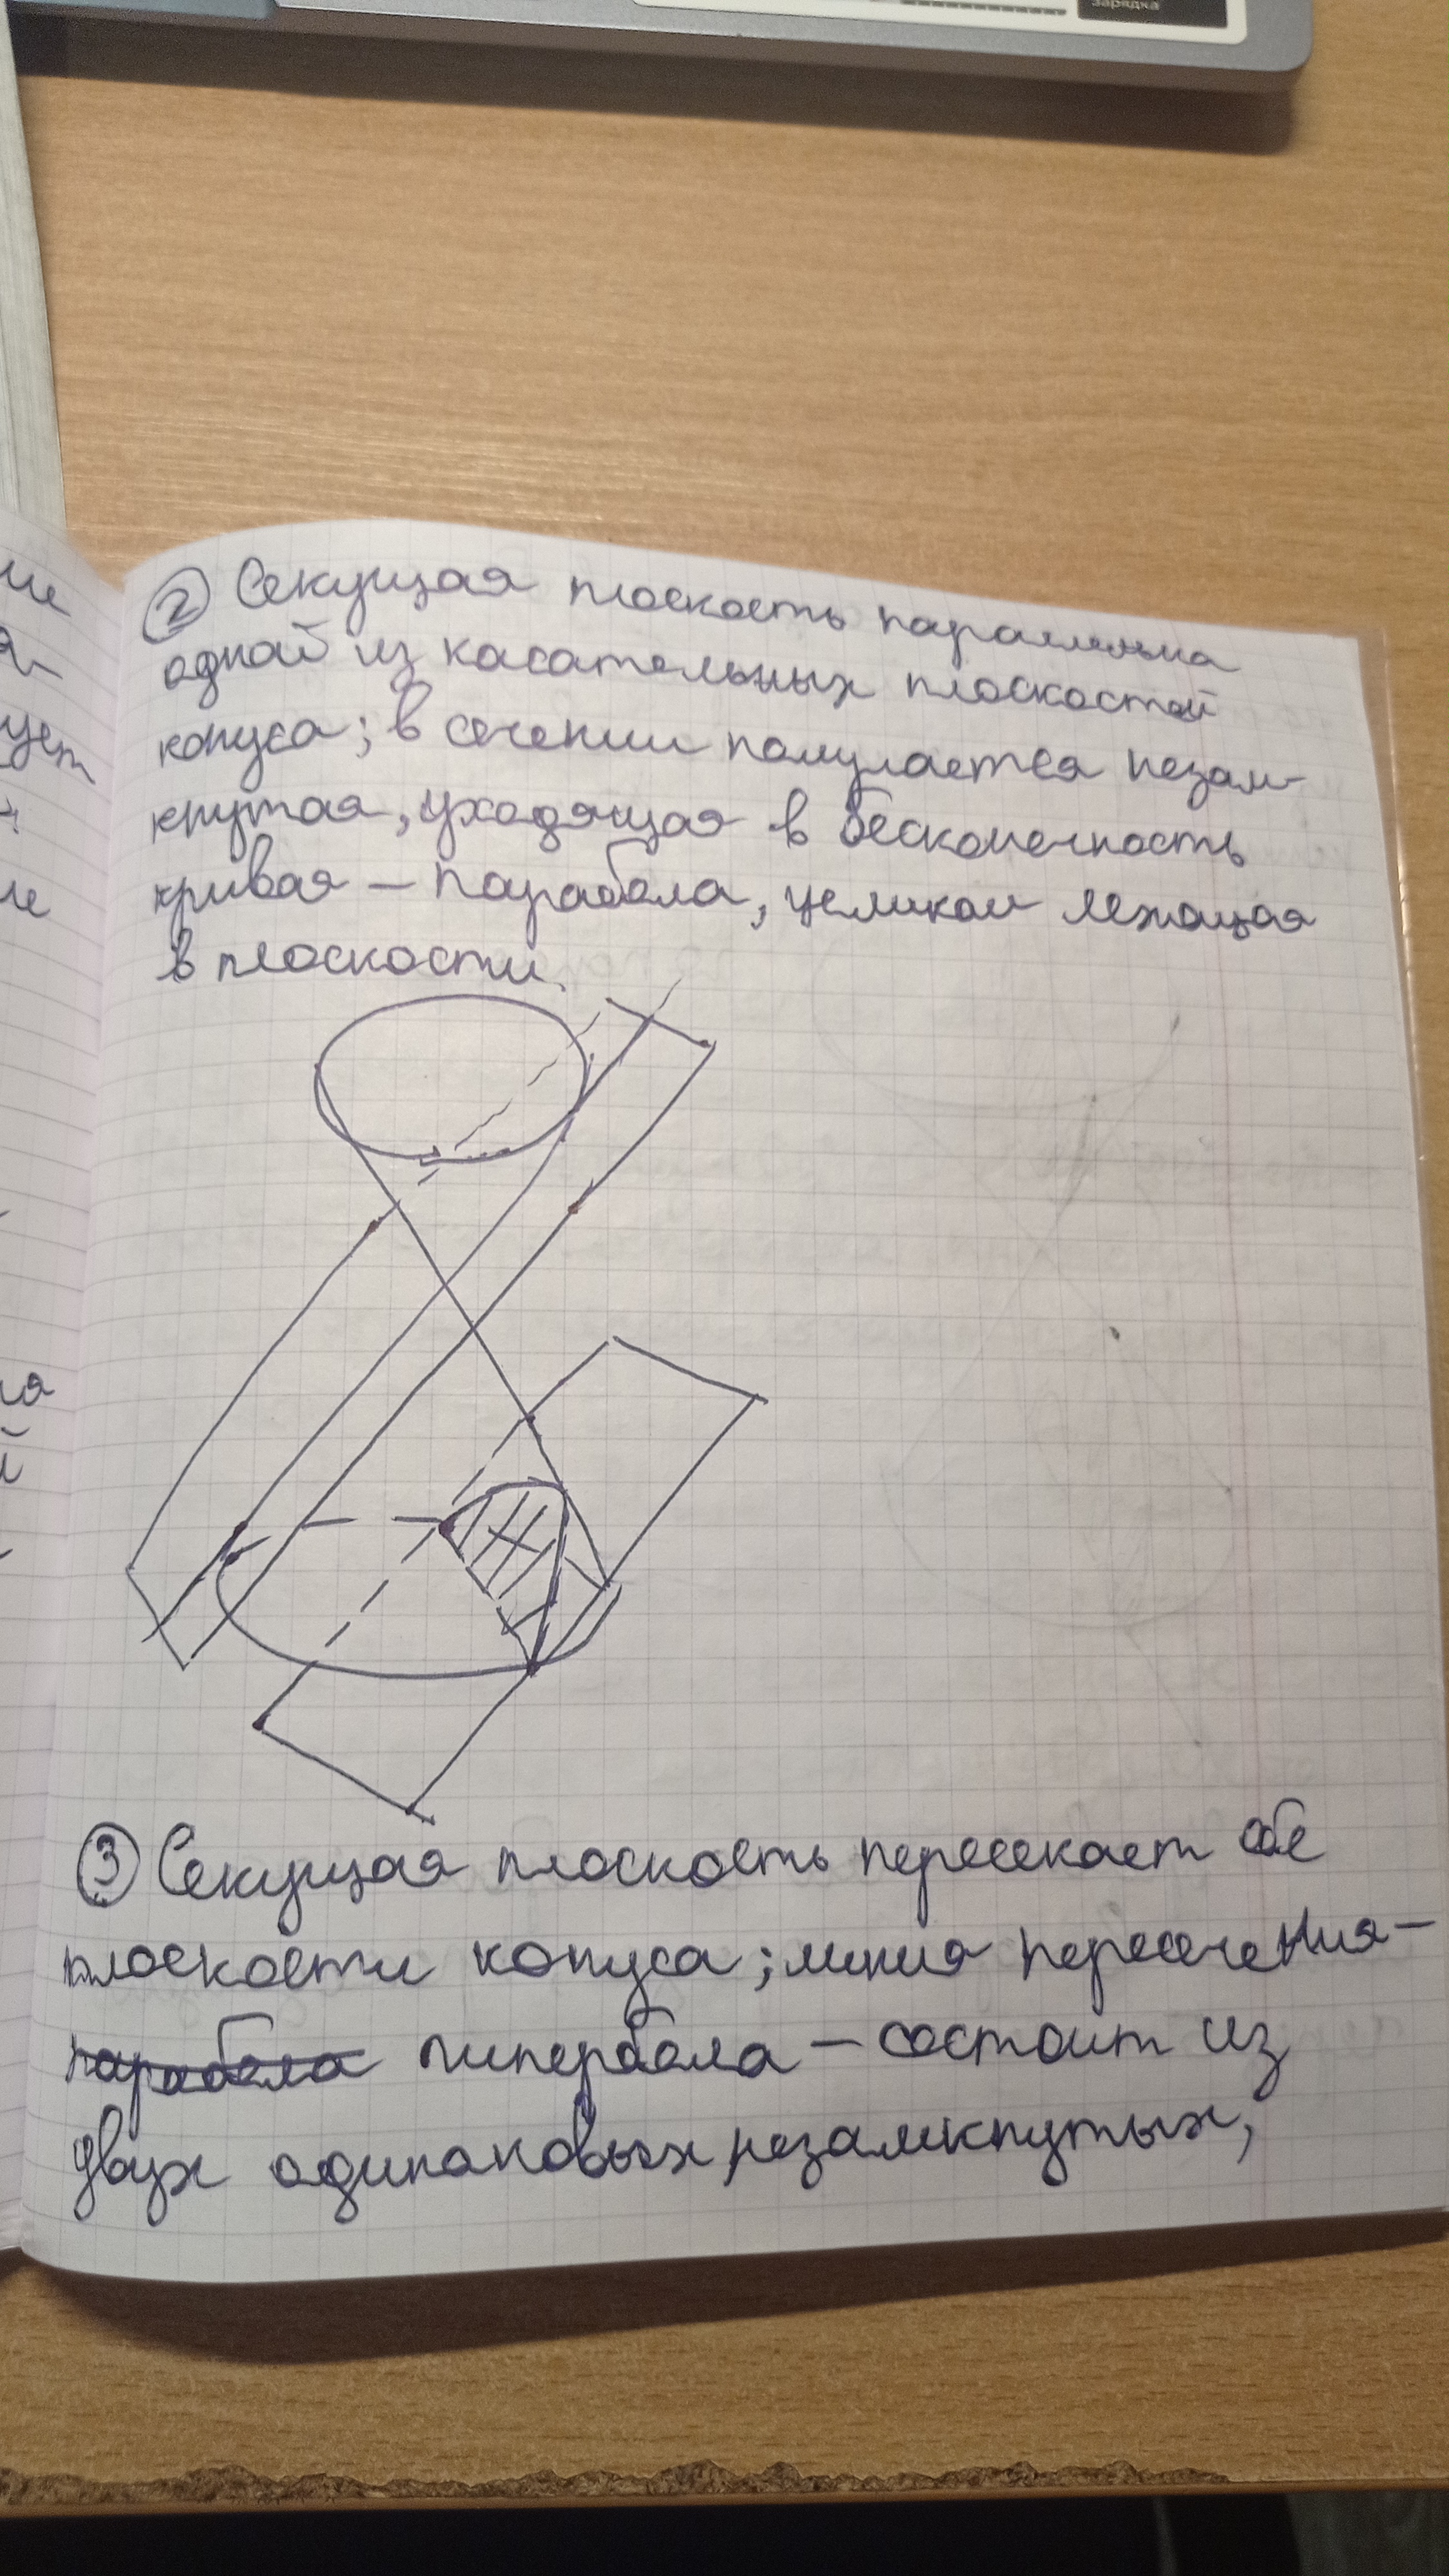 зарядка
② Секущая плоскость параллельна
одной из касательных плоскостей
конуса; в сечении получается незам-
кнутая, уходящая в бесконечность
кривая – парабола, целиком лежащая
в плоскости.
③ Секущая плоскость пересекает обе
плоскости конуса; линия пересечения –
парабола гипербола – состоит из
двух одинаковых незамкнутых,